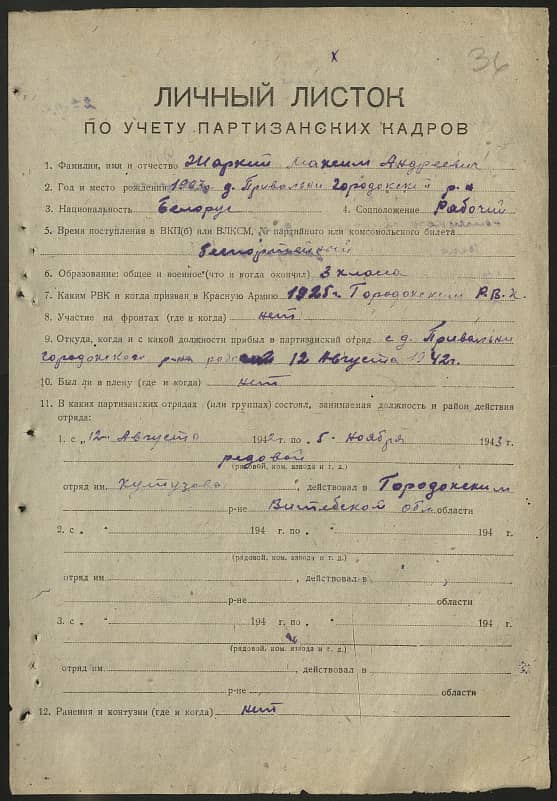 36
ЛИЧНЫЙ ЛИСТОК
ПО УЧЕТУ ПАРТИЗАНСКИХ КАДРОВ
1. Фамилия, имя и отчество Жаркий Максим Андреевич
2. Год и место рождения д. Привальни Городокский р-н
3. Национальность Белорус 4. Соцположение Рабочий
5. Время поступления в ВКП(б) или ВЛКСМ, № партийного или комсомольского билета
беспартейный
6. Образование: общее и военное (что и когда окончил) 3 класа
7. Каким РВК и когда призван в Красную Армию 1925г. Городокским Р.В.К.
8. Участие на фронтах (где и когда) нет
9. Откуда, когда и с какой должности прибыл в партизанский отряд с д. Привальни
Городокского р-на 12 Августа 1942г.
10. Был ли в плену (где и когда) нет
11. В каких партизанских отрядах (или группах) состоял, занимаемая должность и район действия
отряда:
1. с „12 Августа 1942г. по „5. Ноября 1943 г.
редовой
(рядовой, ком. взвода и т. д.)
отряд им. Кутузова , действовал в Городокским
р-не Витебской обл. области
2. с „ “ 194 г. по „ “ 194 г.
(рядовой, ком. взвода и т. д.)
отряд им. , действовал в
р-не области
3. с „ “ 194 г. по „ “ 194 г.
(рядовой, ком. взвода и т. д.)
отряд им. , действовал в
р-не области
12. Ранения и контузии (где и когда) нет